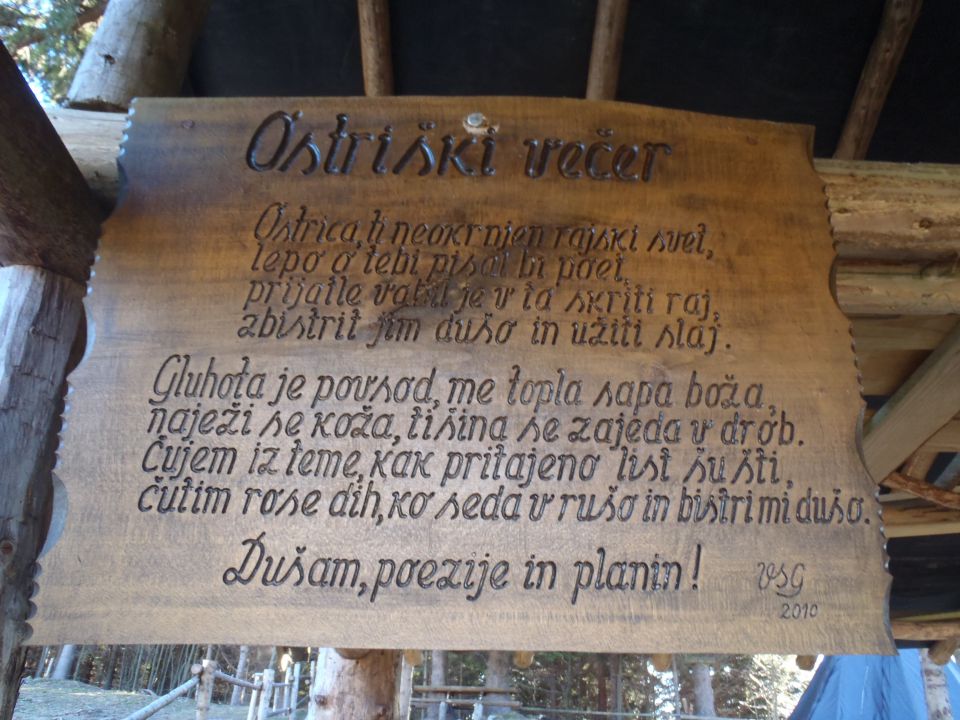 Ostriški večer
Ostrica, ti neokrnjen rajski svet,
lepo o tebi pisal bi poet,
prijatle vabil je v ta skriti raj,
zbistrit jim dušo in užiti slaj.
Gluhota je povsod, me topla sapa boža,
naježi se koža, tišina se zajeda v drob.
Čujem iz teme, kak pritajeno list šušti,
čutim rose dih, ko seda v rušo in bistri mi dušo.
Dušam, poezije in planin!
VSG
2010